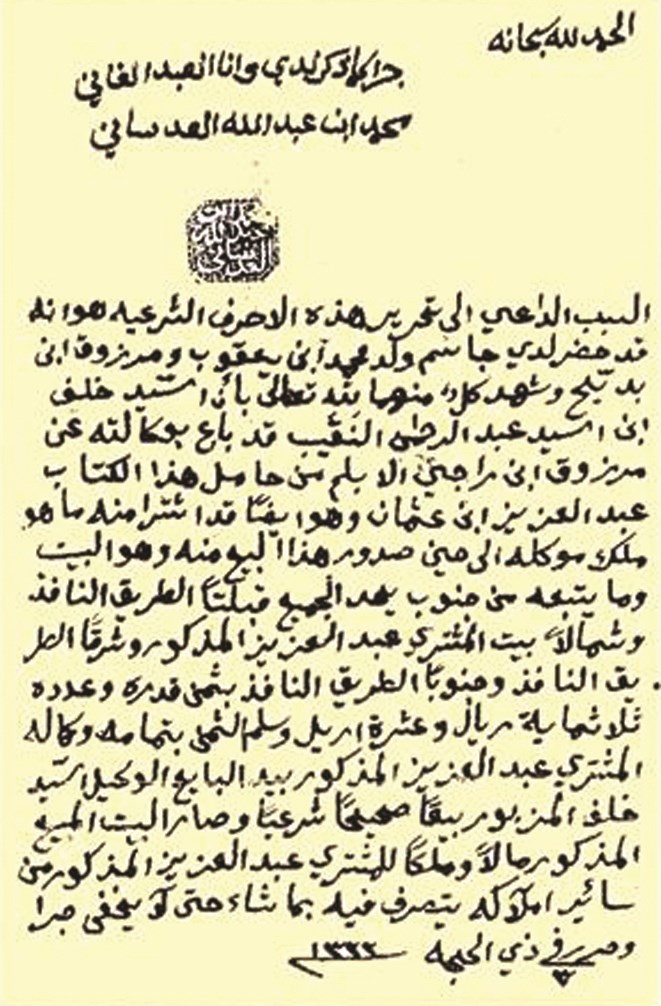 الحمد لله سبحانه
جرا كما ذكر لدي وانا العبد الفاني
محمد ابن عبدالله العدساني
السبب الداعي الى تحرير هذه الاحرف الشرعيه هو انه
قد حضر لدي جاسم ولد محمد ابن يعقوب ومرزوق ابن
بديّح وشهد كلاً منهما لله تعالى بأن السيد خلف
ابن السيد عبد الرحمن النقيب قد باع بوكالته عن
مرزوق ابن راجحي الابلم من حامل هذا الكتاب
عبد العزيز ابن عثمان وهو ايضاً قد اشترا منه ما هو
ملك موكله الى حين صدور هذا البيع منه وهو البيت
وما يتبعه من منوب يحد الجميع قبلتاً الطريق النافذ
وشمالاً بيت المشتري عبد العزيز المذكور وشرقاً الطر
يق النافذ وجنوباً الطريق النافذ بثمن قدره وعدده
ثلاثماية ريال وعشرة اريل وسلم الثمن بتمامه وكماله
المشتري عبد العزيز المذكور بيد البايع الوكيل السيد
خلف المزبور بيعاً صحيحاً شرعياً وصار البيت المبيع
المذكور مالاً وملكاً للمشتري عبد العزيز المذكور من
ساير املاكه يتصرف فيه بما شاء حتى لا يخفى جرا
وحرر في ذي الحجه ١٣٢٢